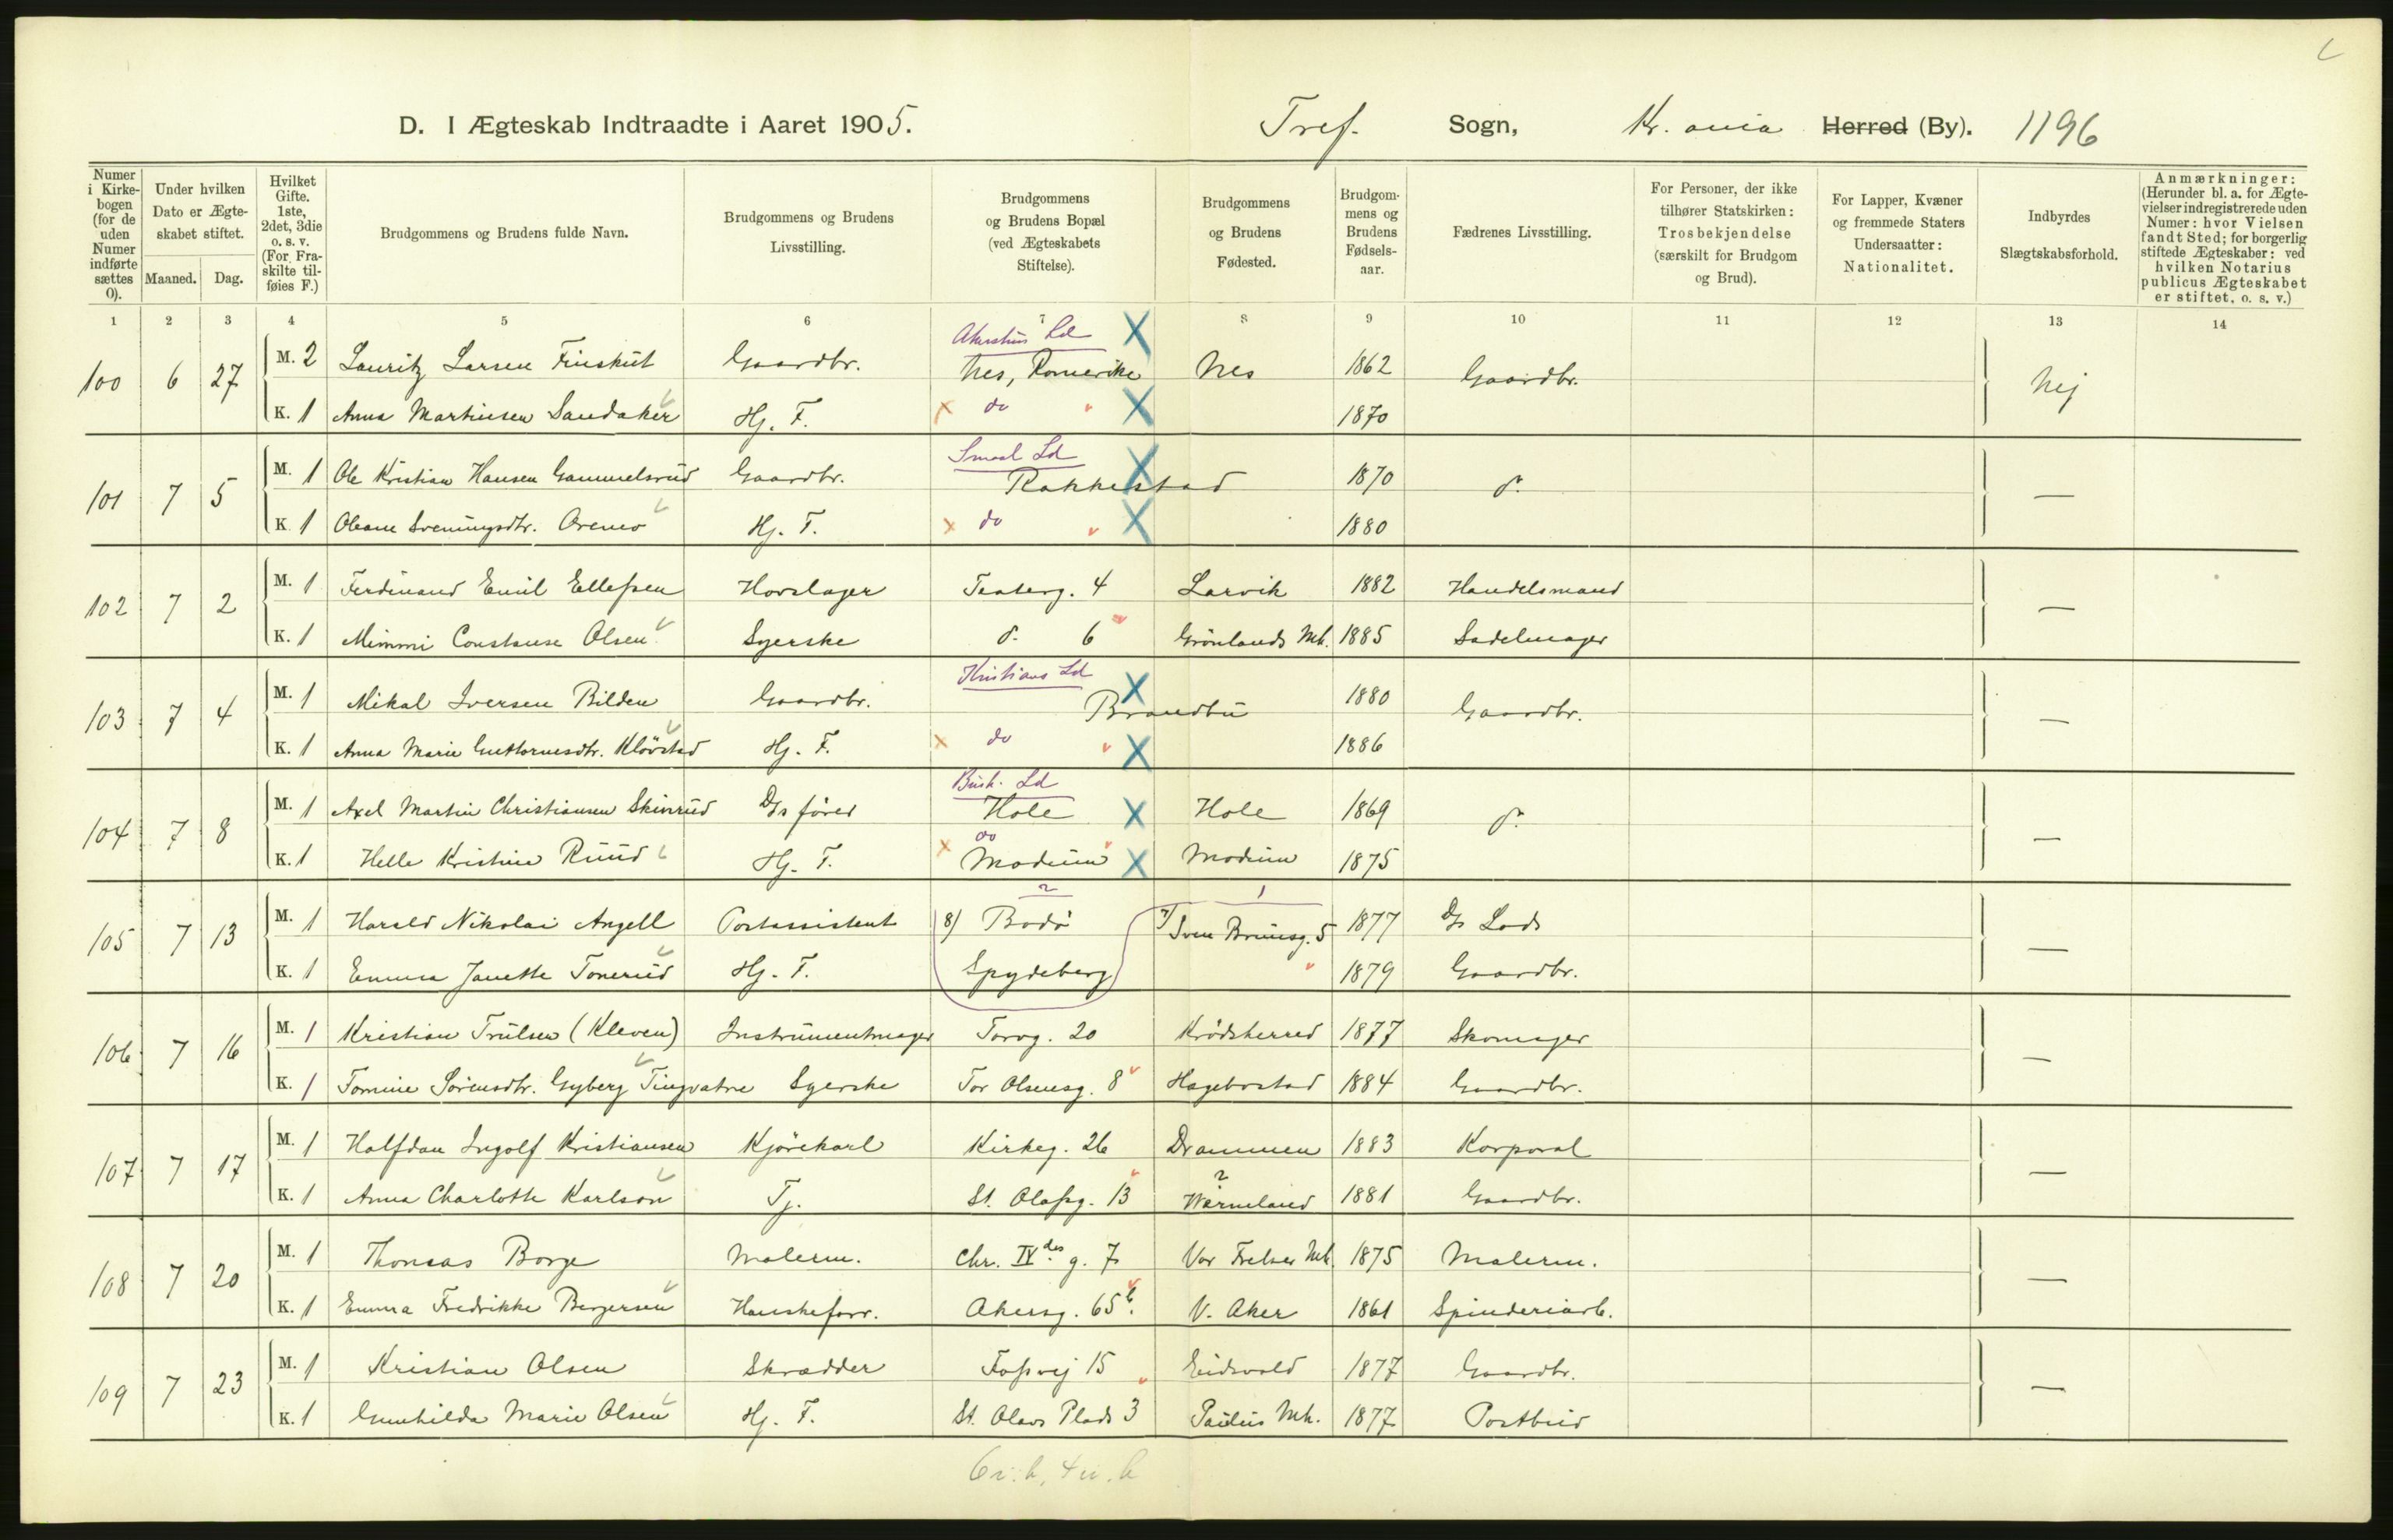 D. I Ægteskab Indtraadte i Aaret 1905. Tref. Sogn, Kr. ania Herred (By). 1196
Numer i Kirkebogen (for de uden Numer indførte sættes 0).
Under hvilken Dato er Ægteskabet stiftet.
Maaned. Dag.
Hvilket Gifte. 1ste, 2det, 3die o. s. v. (For Fraskilte tilføies F.)
Brudgommens og Brudens fulde Navn.
Brudgommens og Brudens Livsstilling.
Brudgommens og Brudens Bopæl (ved Ægteskabets Stiftelse).
Brudgommens og Brudens Fødested.
Brudgommens og Brudens Fødselsaar.
Fædrenes Livsstilling.
For Personer, der ikke tilhører Statskirken: Trosbekjendelse (særskilt for Brudgom og Brud).
For Lapper, Kvæner og fremmede Staters Undersaatter: Nationalitet.
Indbyrdes Slægtskabsforhold.
Anmærkninger: (Herunder bl. a. for Ægtevielser indregistrerede uden Numer: hvor Vielsen fandt Sted; for borgerlig stiftede Ægteskaber: ved hvilken Notarius publicus Ægteskabet er stiftet, o. s. v.)
1 2 3 4 5 6 7 8 9 10 11 12 13 14
Akershus Ld X
100 6 27 M. 2 Lauritz Larsen Finskut Gaardbr. Nes, Romerike Nes 1862 Gaardbr. Nej
K. 1 Anna Martinsen Sandaker Hj. F. do X 1870
Smaal Ld X
101 7 5 M. 1 Ole Kristian Hansen Gammelsrud Gaardbr. Rakkestad 1870 d. —
K. 1 Oleane Sveningsdtr. Oremo Hj. F. do X 1880
102 7 2 M. 1 Ferdinand Emil Ellefsen Hovslager Teaterg. 4 Larvik 1882 Handelsmand —
K. 1 Mimmi Constanse Olsen Syerske d. 6 Grönlands Mh. 1885 Sadelmager
Kristians Ld X
103 7 4 M. 1 Mikal Iversen Bilden Gaardbr. Brandbu 1880 Gaardbr. —
K. 1 Anna Marie Guttormsdtr. Klövstad Hj. F. do X 1886
Busk. Ld
104 7 8 M. 1 Axel Martin Christiansen Skinrud Dsfører Hole X Hole 1869 d. —
do
K. 1 Helle Kristine Ruud Hj. F. Modum X Modum 1875
2 1
105 7 13 M. 1 Harald Nikolai Angell Postassistent 8) Bodö 7) Sven Brunsg. 5 1877 Ds Lods —
K. 1 Emma Janette Tonerud Hj. F. Spydeberg 1879 Gaardbr.
106 7 16 M. 1 Kristian Trulsen (Kleven) Instrumentmager Torvg. 20 Krödsherred 1877 Skomager —
K. 1 Tomine Sörensdtr. Gyberg Tingvatne Syerske Tor Olsensg. 8 Hægebostad 1884 Gaardbr.
107 7 17 M. 1 Halfdan Ingolf Kristiansen Kjörekarl Kirkeg. 26 Drammen 1883 Korporal —
2
K. 1 Anna Charlotte Karlson Tj. St. Olafsg. 13 Wärmeland 1881 Gaardbr.
108 7 20 M. 1 Thomas Borge Malerm. Chr. IV des g. 7 Vor Frelser Mh. 1875 Malerm. —
K. 1 Emma Fredrikke Bergersen Hanskeforr. Akersg. 65 b. V. Aker 1861 Spinderiarb.
109 7 23 M. 1 Kristian Olsen Skrædder Fossvej 15 Eidsvold 1877 Gaardbr. —
K. 1 Gunhilda Marie Olsen Hj. F. St. Olavs Plads 3 Paulus Mh. 1877 Postbud
6 i. b, 4 u. b